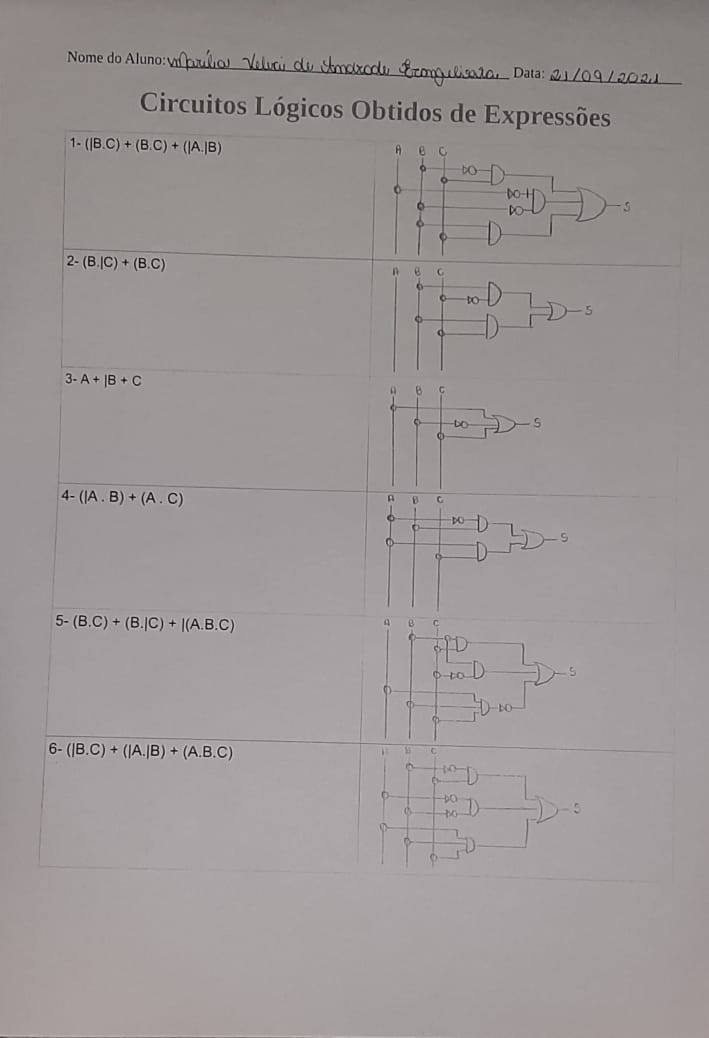 Nome do Aluno: Marília de Andrade Evangelista Data: 21/09/2021
Circuitos Lógicos Obtidos de Expressões
1- (|B.C) + (B.C) + (|A.|B)
A B C
S
2- (B.|C) + (B.C)
A B C
S
3- A + |B + C
A B C
S
4- (|A . B) + (A . C)
A B C
S
5- (B.C) + (B.|C) + |(A.B.C)
A B C
S
6- (|B.C) + (|A.|B) + (A.B.C)
A B C
S